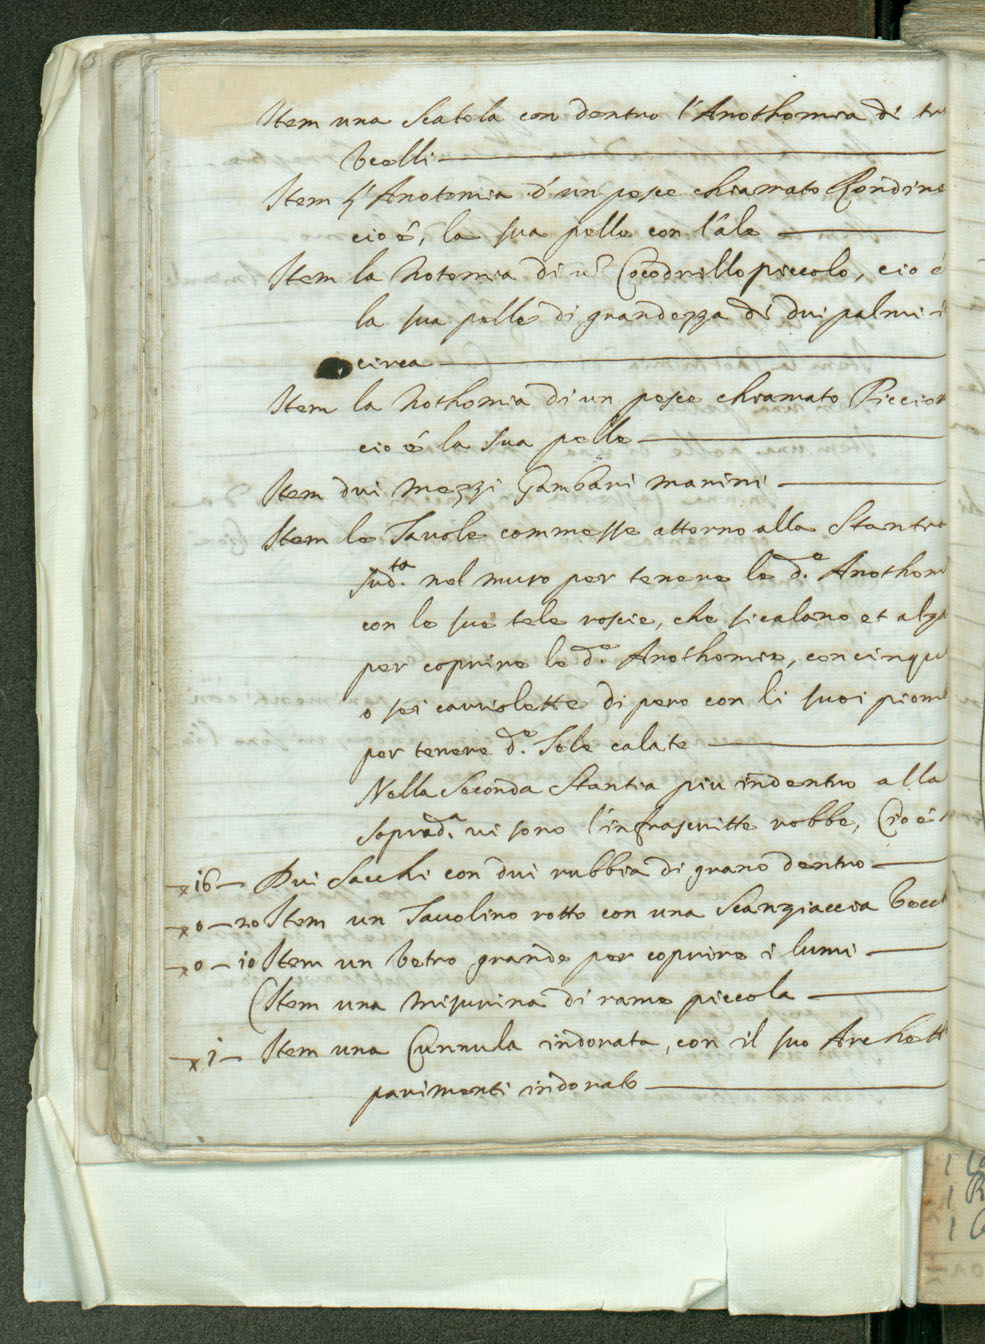 Item una Scatola con dentro l'Anothomia di tre
Vcelli
Item l'Anotomia d'un pesce chiamato Rondine
cio é, la sua pelle con l'ale
Item la Notomia di un Cocodrillo piccolo, cio é
la sua pelle di grandezza di dui palmi
circa
Item la Nothomia di un pesce chiamato Piccion
cio é la sua pelle
Item dui mezzi Gambari marini
Item le Tavole commesse attorno alla Stantia
sud.ta nel muro per tenere le d.e Anothom
con le sue tele roscie, che si calano et alza
per coprire le d.e Anothomie, con cinque
o sei carriolette di pero con li suoi piom
per tenere d.e Tele calate
Nella Seconda Stantia piu indentro alla
soprad.a vi sono l'infrascritte robbe, Cio é
16 Dui Sacchi con dui rubbia di grano dentro
0 20 Item un Tavolino rotto con una Scanziaccia Vecch
0 10 Item un Vetro grande per coprire i lumi
Item una misurina di rame piccola
1 Item una Cunnula indorata, con il suo Archett
parimenti indorato